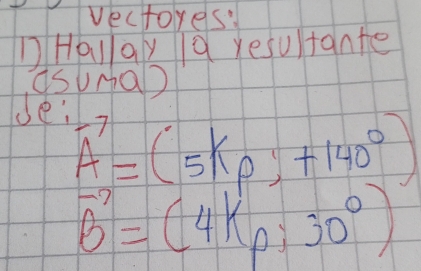 Vectores:
1) Hallar la resultante
(suma)
de:
A⃗ = (5Kp; +140°)
B⃗ = (4Kp; 30°)